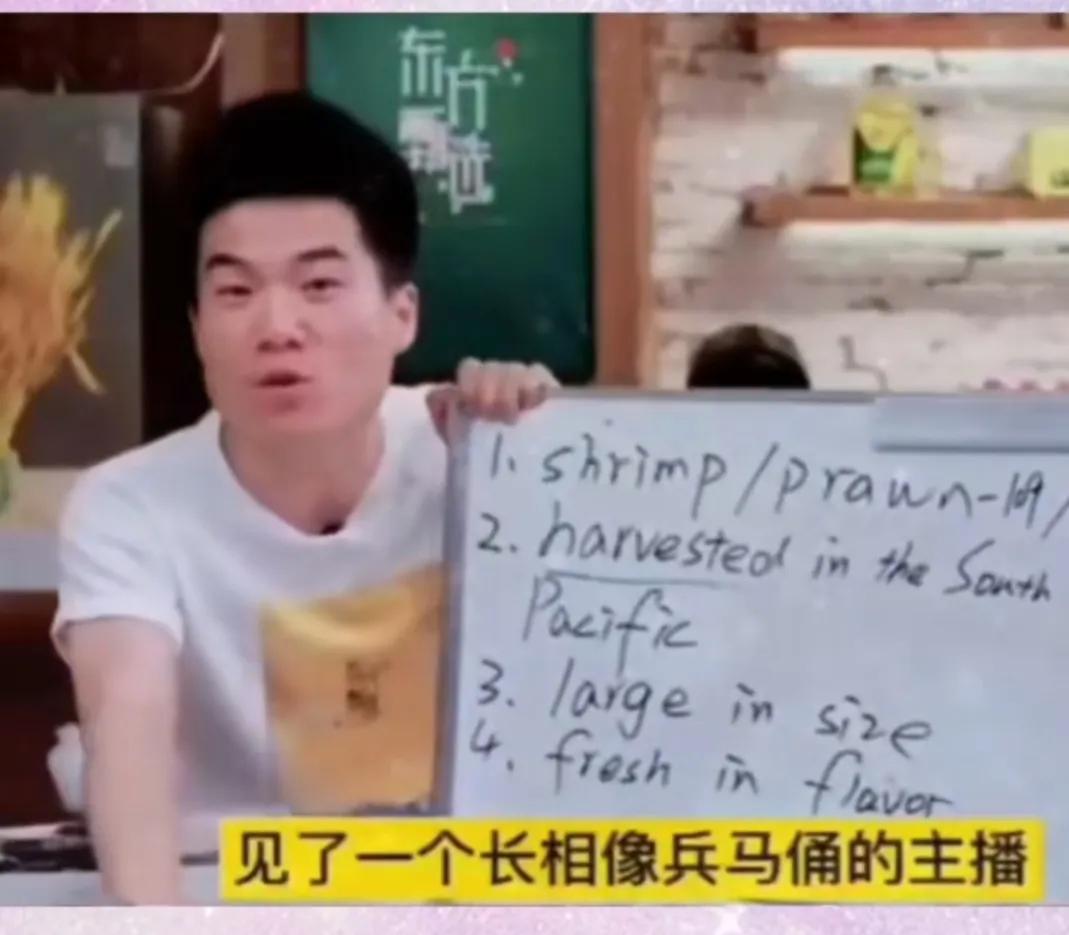 东方
甄选
1. shrimp/prawn-
2. harvested in the South
Pacific
3. large in size
4. fresh in flavor
见了一个长相像兵马俑的主播